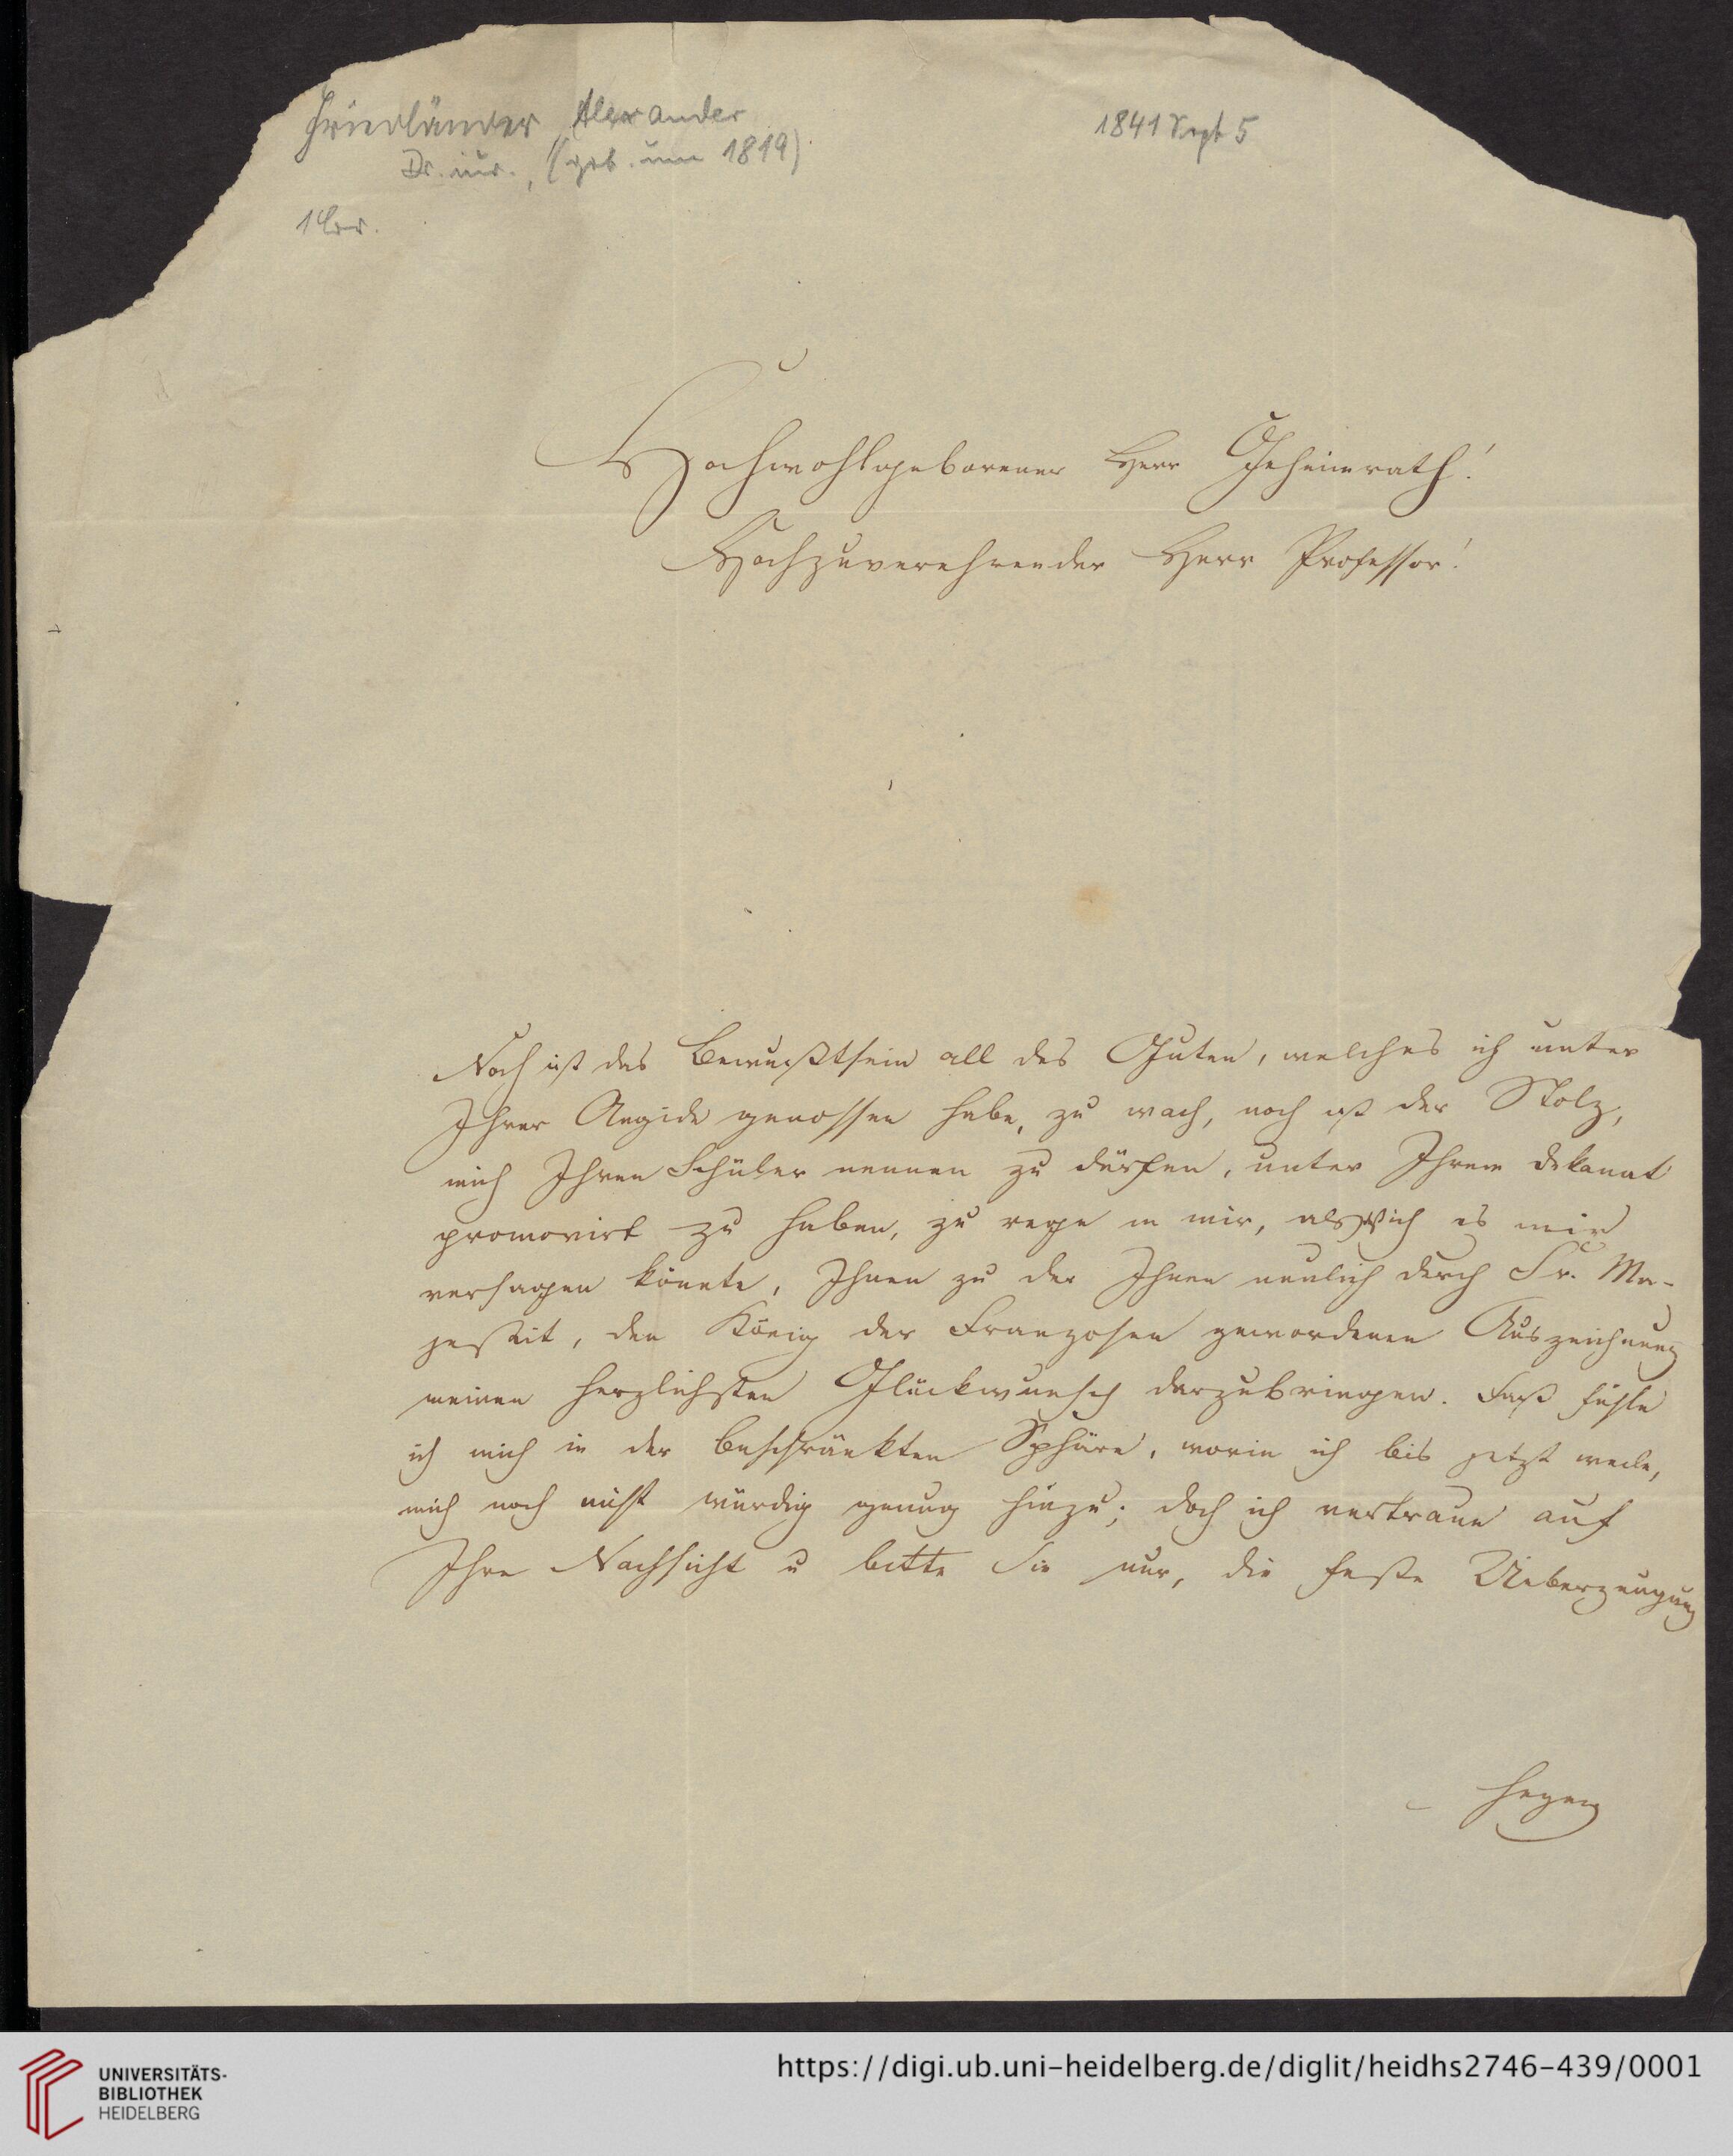 Friedländer, Alexander
1841 Sept 5
Dr. iur., (geb. um 1819)
1 Br.
Hochwohlgeborener Herr Geheimrath!
Hochzuverehrender Herr Professor!
Noch ist das Bewußtsein all des Guten, welches ich unter
Ihrer Aegide genossen habe, zu wach, noch ist der Stolz,
mich Ihren Schüler nennen zu dürfen, unter Ihrem Dekanat
promovirt zu haben, zu rege in mir, als ich es mir
versagen könnte, Ihnen zu der Ihnen neulich durch Sr. Ma-
jestät, den König der Franzosen gewordenen Auszeichnung
meinen herzlichsten Glückwunsch darzubringen. Fast fühle
ich mich in der beschränkten Sphäre, worin ich bis jetzt weile,
mich noch nicht würdig genug hinzu; doch ich vertraue auf
Ihre Nachsicht u bitte Sie nur, die feste Ueberzeugung
hegen
UNIVERSITÄTS-
BIBLIOTHEK
HEIDELBERG
https://digi.ub.uni-heidelberg.de/diglit/heidhs2746-439/0001